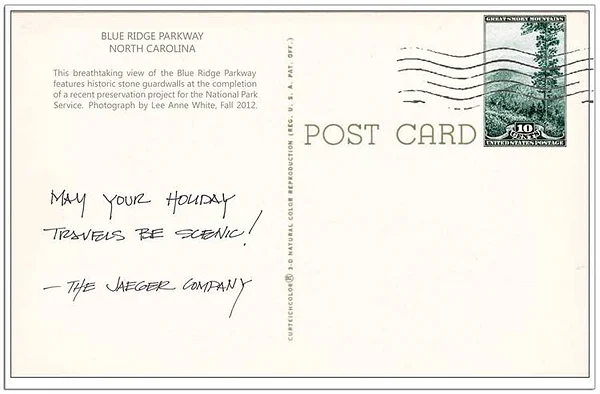 BLUE RIDGE PARKWAY
NORTH CAROLINA
This breathtaking view of the Blue Ridge Parkway
features historic stone guardwalls at the completion
of a recent preservation project for the National Park
Service. Photograph by Lee Anne White, Fall 2012.
MAY YOUR HOLIDAY
TRAVELS BE SCENIC!
— THE JAEGER COMPANY
CURTEICHCOLOR® 3-D NATURAL COLOR REPRODUCTION (REG. U. S. A. PAT. OFF.)
POST CARD
GREAT SMOKY MOUNTAINS
10
CENTS
UNITED STATES POSTAGE